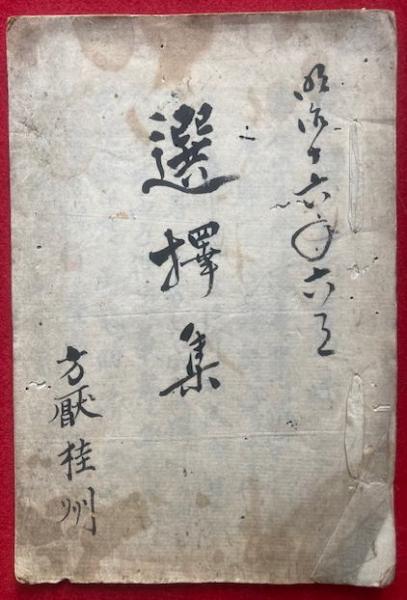 明治十六年六月
選擇集
方厭桂州